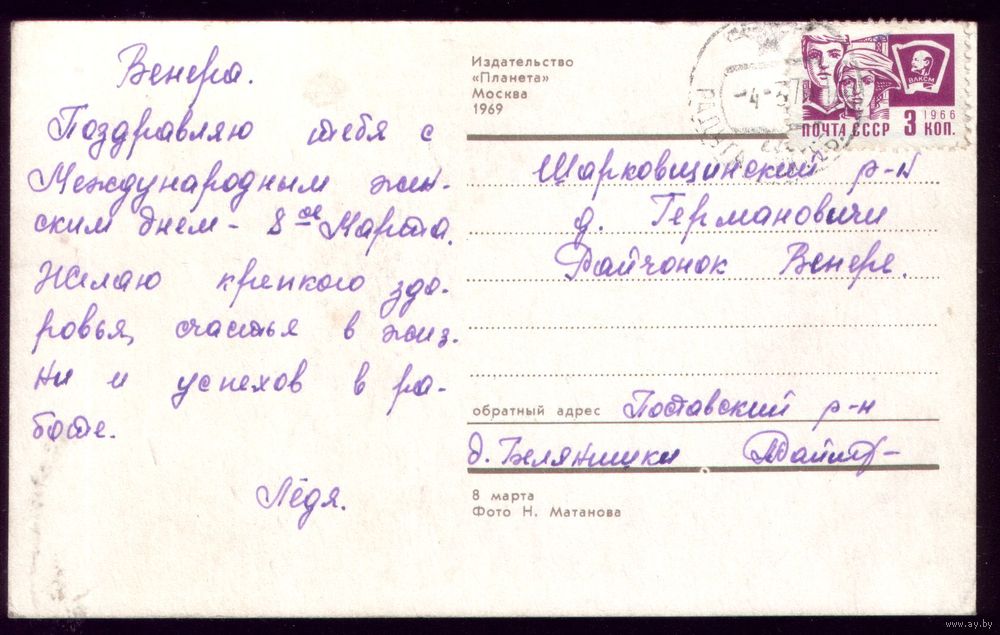 Венера.
Поздравляю тебя с
Международным жен-
ским днем - 8 ое Марта.
Желаю крепкого здо-
ровья, счастья в жиз-
ни и успехов в ра-
боте.
Лёдя.
Издательство
«Планета»
Москва
1969
ВЛКСМ
1966
ПОЧТА СССР 3 КОП.
Шарковщинский р-н
д. Германовичи
Райчонок Венере.
обратный адрес Поставский р-н
д. Беляншики
8 марта
Фото Н. Матанова
www.ay.by